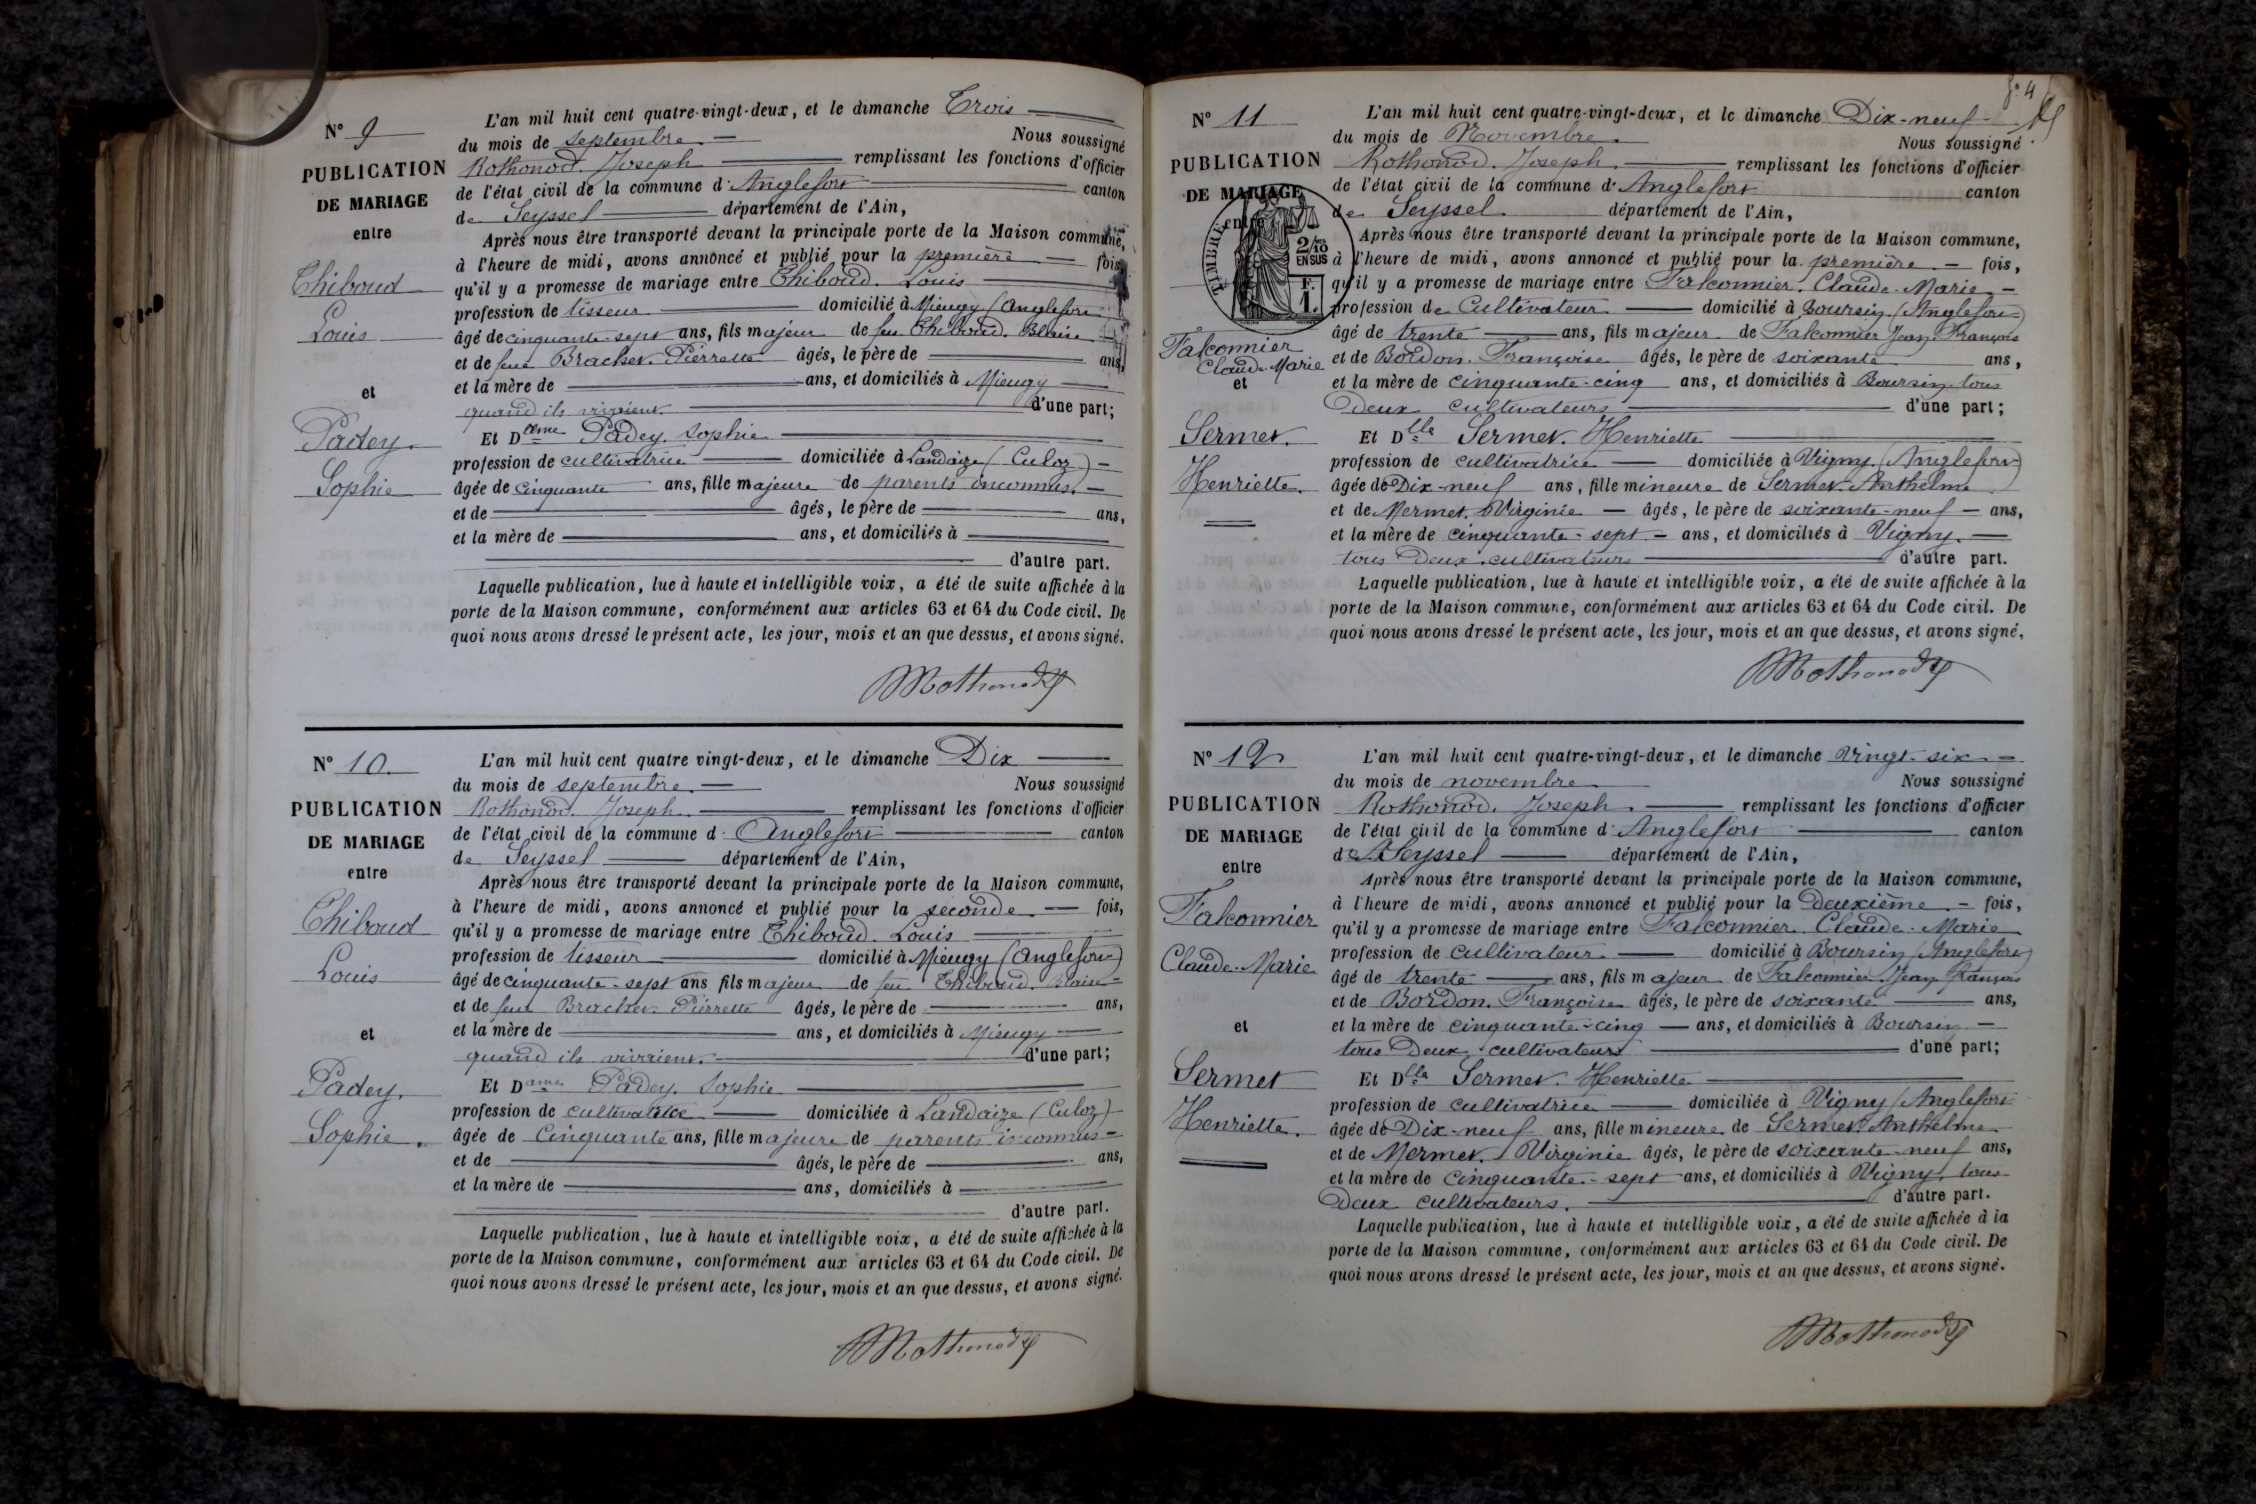 N° 9
PUBLICATION
DE MARIAGE
entre
Thiboud
Louis
et
Padey.
Sophie
L'an mil huit cent quatre-vingt-deux, et le dimanche Trois
du mois de septembre Nous soussigné
Rothonod. Joseph remplissant les fonctions d'officier
de l'état civil de la commune d' Anglefort canton
de Seyssel département de l'Ain,
Après nous être transporté devant la principale porte de la Maison commune,
à l'heure de midi, avons annoncé et publié pour la première fois,
qu'il y a promesse de mariage entre Thiboud. Louis
profession de tisseur domicilié à Mieugy (Anglefort
âgé de cinquante-sept ans, fils majeur de feu Thiboud. Blaise
et de feue Brachet. Pierrette âgés, le père de ans,
et la mère de ans, et domiciliés à Mieugy
quand ils vivaient. d'une part;
Et Dame Padey. Sophie
profession de cultivatrice domiciliée à Landaize (Culoz)
âgée de cinquante ans, fille majeure de parents inconnus.
et de âgés, le père de ans,
et la mère de ans, et domiciliés à
d'autre part.
Laquelle publication, lue à haute et intelligible voix, a été de suite affichée à la
porte de la Maison commune, conformément aux articles 63 et 64 du Code civil. De
quoi nous avons dressé le présent acte, les jour, mois et an que dessus, et avons signé.
Rothonod
N° 10.
PUBLICATION
DE MARIAGE
entre
Thiboud
Louis
et
Padey.
Sophie.
L'an mil huit cent quatre vingt-deux, et le dimanche Dix
du mois de septembre. Nous soussigné
Rothonod. Joseph. remplissant les fonctions d'officier
de l'état civil de la commune d' Anglefort canton
de Seyssel département de l'Ain,
Après nous être transporté devant la principale porte de la Maison commune,
à l'heure de midi, avons annoncé et publié pour la seconde fois,
qu'il y a promesse de mariage entre Thiboud. Louis
profession de tisseur domicilié à Mieugy (Anglefort)
âgé de cinquante-sept ans fils majeur de feu Thiboud. Blaise
et de feue Brachet. Pierrette âgés, le père de ans,
et la mère de ans, et domiciliés à Mieugy
quand ils vivaient. d'une part;
Et Dame Padey. Sophie
profession de cultivatrice domiciliée à Landaize (Culoz)
âgée de Cinquante ans, fille majeure de parents inconnus
et de âgés, le père de ans,
et la mère de ans, domiciliés à
d'autre part.
Laquelle publication, lue à haute et intelligible voix, a été de suite affichée à la
porte de la Maison commune, conformément aux articles 63 et 64 du Code civil. De
quoi nous avons dressé le présent acte, les jour, mois et an que dessus, et avons signé.
Rothonod
fo 4
N° 11
PUBLICATION
DE MARIAGE
entre
TIMBRE
2/10
EN SUS
F.
1.
Falconnier
Claude-Marie
et
Sermet.
Henriette.
L'an mil huit cent quatre-vingt-deux, et le dimanche Dix-neuf
du mois de Novembre. Nous soussigné
Rothonod. Joseph. remplissant les fonctions d'officier
de l'état civil de la commune d' Anglefort canton
de Seyssel. département de l'Ain,
Après nous être transporté devant la principale porte de la Maison commune,
à l'heure de midi, avons annoncé et publié pour la première fois,
qu'il y a promesse de mariage entre Falconnier. Claude-Marie
profession de Cultivateur domicilié à Boursin (Anglefort)
âgé de trente ans, fils majeur de Falconnier Jean-François
et de Bordon. Françoise âgés, le père de soixante ans,
et la mère de cinquante-cinq ans, et domiciliés à Boursin tous
deux cultivateurs d'une part;
Et Dlle Sermet. Henriette
profession de cultivatrice domiciliée à Vigny (Anglefort)
âgée de Dix-neuf ans, fille mineure de Sermet. Anthelme
et de Mermet. Virginie âgés, le père de soixante-neuf ans,
et la mère de cinquante-sept ans, et domiciliés à Vigny.
tous deux cultivateurs d'autre part.
Laquelle publication, lue à haute et intelligible voix, a été de suite affichée à la
porte de la Maison commune, conformément aux articles 63 et 64 du Code civil. De
quoi nous avons dressé le présent acte, les jour, mois et an que dessus, et avons signé.
Rothonod
N° 12
PUBLICATION
DE MARIAGE
entre
Falconnier
Claude-Marie
et
Sermet
Henriette.
L'an mil huit cent quatre-vingt-deux, et le dimanche vingt-six
du mois de novembre Nous soussigné
Rothonod. Joseph. remplissant les fonctions d'officier
de l'état civil de la commune d' Anglefort canton
de Seyssel département de l'Ain,
Après nous être transporté devant la principale porte de la Maison commune,
à l'heure de midi, avons annoncé et publié pour la deuxième fois,
qu'il y a promesse de mariage entre Falconnier. Claude-Marie
profession de cultivateur domicilié à Boursin (Anglefort)
âgé de trente ans, fils majeur de Falconnier. Jean-François
et de Bordon. Françoise âgés, le père de soixante ans,
et la mère de cinquante-cinq ans, et domiciliés à Boursin
tous deux cultivateurs d'une part;
Et Dlle Sermet. Henriette
profession de cultivatrice domiciliée à Vigny (Anglefort
âgée de Dix-neuf ans, fille mineure de Sermet. Anthelme
et de Mermet. Virginie âgés, le père de soixante-neuf ans,
et la mère de cinquante-sept ans, et domiciliés à Vigny, tous
deux cultivateurs. d'autre part.
Laquelle publication, lue à haute et intelligible voix, a été de suite affichée à la
porte de la Maison commune, conformément aux articles 63 et 64 du Code civil. De
quoi nous avons dressé le présent acte, les jour, mois et an que dessus, et avons signé.
Rothonod